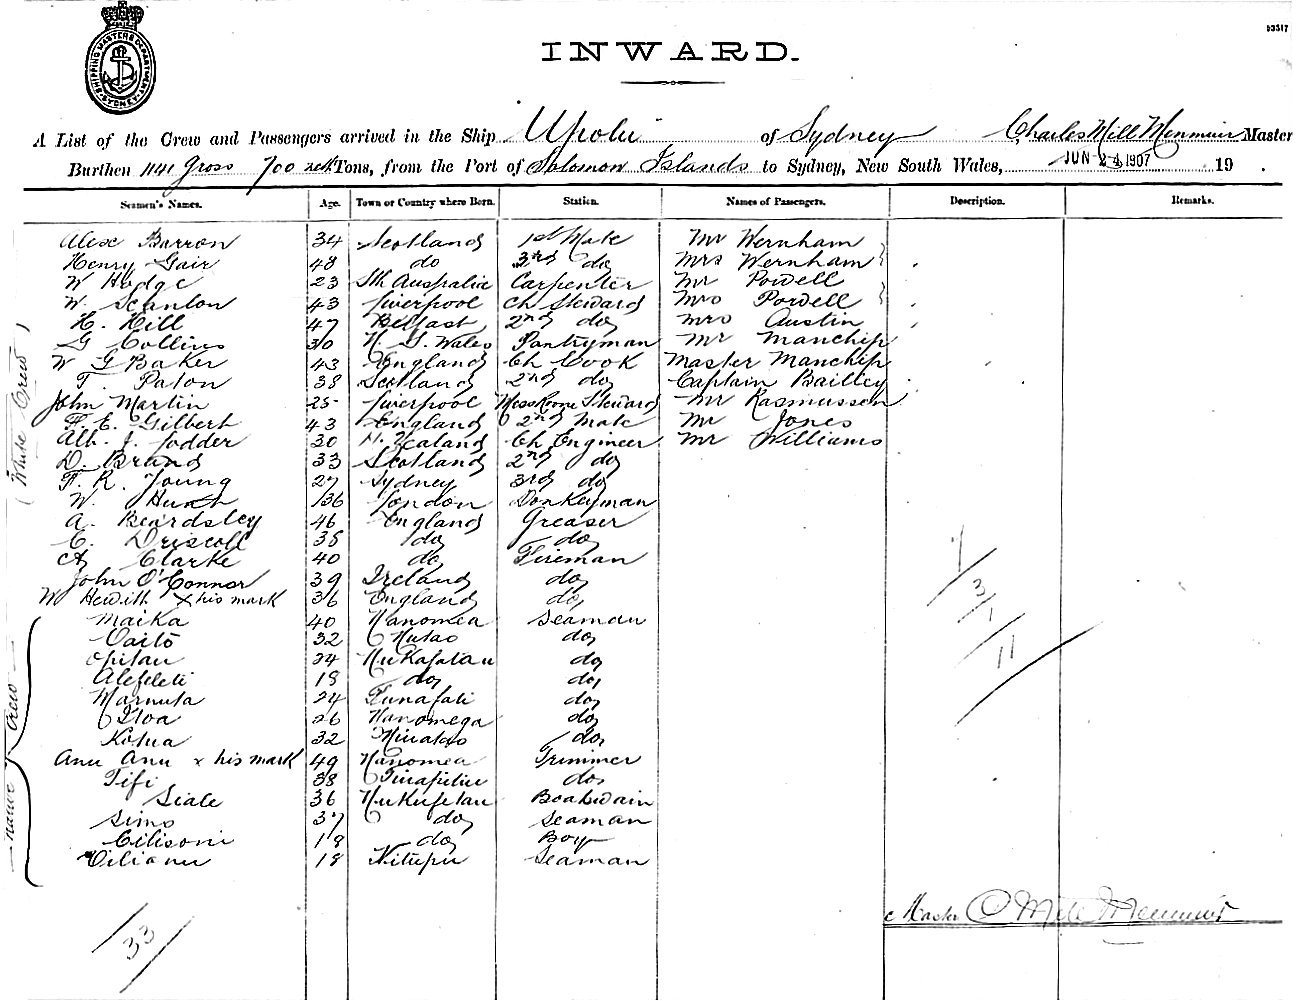 SHIPPING MASTERS DEPARTMENT SYDNEY
53517
INWARD.
A List of the Crew and Passengers arrived in the Ship Upolu of Sydney Charles Mill Menmuir Master
Burthen 1141 Gross 700 nett Tons, from the Port of Solomon Islands to Sydney, New South Wales, JUN 24 1907 19 .
Seamen's Names. Age. Town or Country where Born. Station. Names of Passengers. Description. Remarks.
(White Crew)
Alex Barron 34 Scotland 1st Mate Mr Wernham
Henry Gair 48 do 3rd do Mrs Wernham
W Hodge 23 Sth Australia Carpenter Mr Powell
W. Scanlon 43 Liverpool Ch Steward Mrs Powell
H. Hill 47 Belfast 2nd do Mrs Austin
G Collins 30 N. S. Wales Pantryman Mr Manchip
W G Baker 43 England Ch Cook Master Manchip
T. Paton 38 Scotland 2nd do Captain Bailley
John Martin 25 Liverpool Messroom Steward Mr Rasmussen
F. E. Gilbert 43 England 2nd Mate Mr Jones
Alb. J. Jodder 30 N. Zealand Ch Engineer Mr Williams
D. Brand 33 Scotland 2nd do
F. R. Young 27 Sydney 3rd do
W. Hunt 36 London Donkeyman
A. Beardsley 46 England Greaser
C. Driscoll 38 do do
A Clarke 40 do Fireman
John O'Connor 39 Ireland do
W Hewitt x his mark 36 England do
Native Crew
Maika 40 Nanomea Seaman
Vaito 32 Nutao do
Opitau 24 Nukafatau do
Alefeleti 18 do do
Marnuta 24 Funafuti do
Iloa 26 Nanomega do
Kotua 32 Niutao do
Anu Anu x his mark 49 Nanomea Trimmer
Tifi 38 do
Siale 36 Nukufetau Boatswain
Simo 37 do Seaman
Cilisoni 18 do Boy
Ciliamu 18 Nitupu Seaman
1/3/1/11
Master C Mill Menmuir
33